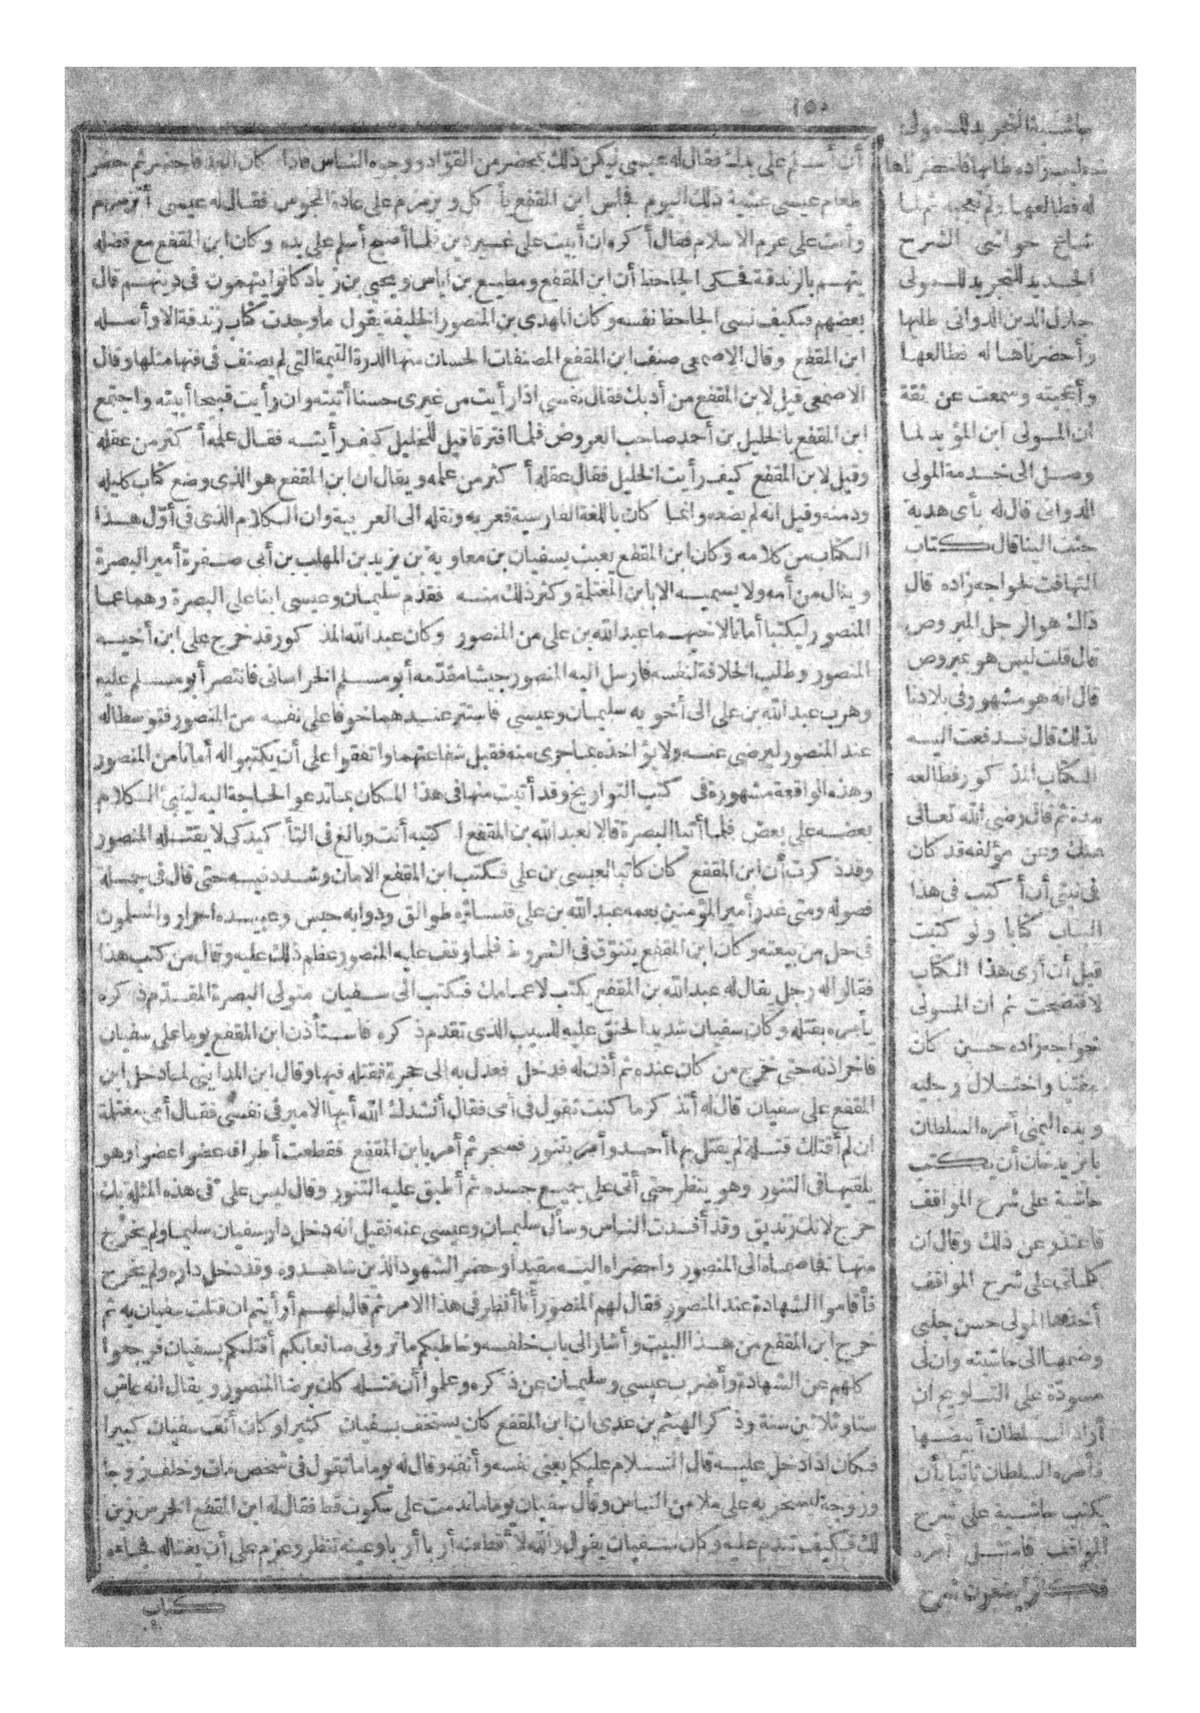 ١٥٠
أن أسلم على يدك فقال له عيسى ليكن ذلك بمحضر من القواد ووجوه الناس فاذا كان الغد فاحضر ثم حضر
طعام عيسى عشية ذلك اليوم فجلس ابن المقفع يأكل ويزمزم على عادة المجوس فقال له عيسى أتزمزم
وأنت على عزم الاسلام فقال أكره ان أبيت على غير دين فلما أصبح أسلم على يده وكان ابن المقفع مع فضله
يتهم بالزندقة فحكى الجاحظ أن ابن المقفع ومطيع بن اياس ويحيى بن زياد كانوا يتهمون فى دينهم قال
بعضهم فكيف نسى الجاحظ نفسه وكان المهدى بن المنصور الخليفة يقول ما وجدت كتاب زندقة الا وأصله
ابن المقفع وقال الاصمعى صنف ابن المقفع المصنفات الحسان منها الدرة اليتيمة التى لم يصنف فى فنها مثلها وقال
الاصمعى قيل لابن المقفع من أدبك فقال نفسى اذا رأيت من غيرى حسنا أتيته وان رأيت قبيحا أبيته واجتمع
ابن المقفع بالخليل بن أحمد صاحب العروض فلما افترقا قيل للخليل كيف رأيته فقال علمه أكثر من عقله
وقيل لابن المقفع كيف رأيت الخليل فقال عقله أكثر من علمه ويقال ان ابن المقفع هو الذى وضع كتاب كليله
ودمنه وقيل انه لم يضعه وانما كان باللغة الفارسية فعربه ونقله الى العربية وان الكلام الذى فى أول هذا
الكتاب من كلامه وكان ابن المقفع يعبث بسفيان بن معاوية بن يزيد بن المهلب بن أبى صفرة أمير البصرة
وينال من أمه ولا يسميه الا بابن المغتلمة وكثر ذلك منه فقدم سليمان وعيسى ابنا على البصرة وهما عما
المنصور ليكتبا أمانا لاخيهما عبد الله بن على من المنصور وكان عبد الله المذكور قد خرج على ابن أخيه
المنصور وطلب الخلافة لنفسه فارسل اليه المنصور جيشا مقدمه أبو مسلم الخراسانى فانتصر أبو مسلم عليه
وهرب عبد الله بن على الى أخويه سليمان وعيسى فاستتر عندهما خوفا على نفسه من المنصور فتوسطا له
عند المنصور ليرضى عنه ولا يؤاخذه بما جرى منه فقبل شفاعتهما واتفقوا على أن يكتبوا له أمانا من المنصور
وهذه الواقعة مشهورة فى كتب التواريخ وقد أتيت منها فى هذا المكان بما تدعو الحاجة اليه لينبنى الكلام
بعضه على بعض فلما أتيا البصرة قالا لعبد الله بن المقفع اكتبه أنت وبالغ فى التأكيد كى لا يقتله المنصور
وقد ذكرت أن ابن المقفع كان كاتبا لعيسى بن على فكتب ابن المقفع الامان وشدد فيه حتى قال فى جملة
فصوله ومتى غدر أمير المؤمنين بعمه عبد الله بن على فنساؤه طوالق ودوابه حبس وعبيده احرار والمسلمون
فى حل من بيعته وكان ابن المقفع يتنوق فى الشروط فلما وقف عليه المنصور عظم ذلك عليه وقال من كتب هذا
فقالوا له رجل يقال له عبد الله بن المقفع يكتب لاعمامك فكتب الى سفيان متولى البصرة المقدم ذكره
يأمره بقتله وكان سفيان شديد الحنق عليه للسبب الذى تقدم ذكره فاستأذن ابن المقفع يوما على سفيان
فاخر اذنه حتى خرج من كان عنده ثم أذن له فدخل فعدل به الى حجرة فقتله فيها وقال ابن المداينى لما دخل ابن
المقفع على سفيان قال له أتذكر ما كنت تقول فى أمى فقال أنشدك الله أيها الامير فى نفسى فقال أمى مغتلمة
ان لم أقتلك قتلة لم يقتل بها أحد وأمر بتنور فسجر ثم أمر بابن المقفع فقطعت أطرافه عضوا عضوا وهو
يلقيها فى التنور وهو ينظر حتى أتى على جميع جسده ثم أطبق عليه التنور وقال ليس على فى هذه المثلة بك
حرج لانك زنديق وقد أفسدت الناس وسأل سليمان وعيسى عنه فقيل انه دخل دار سفيان سليما ولم يخرج
منها فخاصماه الى المنصور واحضراه اليه مقيدا وحضر الشهود الذين شاهدوه وقد دخل داره ولم يخرج
فأقاموا الشهادة عند المنصور فقال لهم المنصور أنا أنظر فى هذا الامر ثم قال لهم أرأيتم ان قتلت سفيان به ثم
خرج ابن المقفع من هذا البيت وأشار الى باب خلفه وخاطبكم ما ترونى صانعا بكم أقتلكم بسفيان فرجعوا
كلهم عن الشهادة وأضرب عيسى وسليمان عن ذكره وعلموا أن قتله كان برضا المنصور ويقال انه عاش
ستا وثلاثين سنة وذكر الهيثم بن عدى ان ابن المقفع كان يستخف بسفيان كثيرا وكان أنف سفيان كبيرا
فكان اذا دخل عليه قال السلام عليكما يعنى نفسه وأنفه وقال له يوما ما تقول فى شخص مات وخلف زوجا
وزوجة ليسخر به على ملا من الناس وقال سفيان يوما ما ندمت على سكوت قط فقال له ابن المقفع الخرس زين
لك فكيف تندم عليه وكان سفيان يقول والله لأقطعنه أربا أربا وعينه تنظر وعزم على أن يغتاله فجاءه
كتاب
حاشية التجريد للمولى
خواجه زاده طلبها فاحضرناها
له فطالعها ولم تعجبه ثم لما
شاع حواشى الشرح
الجديد للتجريد للمولى
جلال الدين الدوانى طلبها
وأحضرناها له فطالعها
وأعجبته وسمعت عن ثقة
ان المولى ابن المؤيد لما
وصل الى خدمة المولى
الدوانى قال له بأى هدية
جئت الينا قال كتاب
التهافت لخواجه زاده قال
ذاك هو الرجل المبروص
قال قلت ليس هو بمبروص
قال انه هو مشهور فى بلادنا
بذلك قال فدفعت اليه
الكتاب المذكور فطالعه
مدة ثم قال رضى الله تعالى
عنك وعن مؤلفه قد كان
فى نيتى أن أكتب فى هذا
الباب كتابا ولو كتبت
قبل أن أرى هذا الكتاب
لافتضحت ثم ان المولى
خواجه زاده حين كان
مفتيا واختلال رجليه
ويده اليمنى أمره السلطان
بايزيد خان أن يكتب
حاشية على شرح المواقف
فاعتذر عن ذلك وقال ان
كلماتى على شرح المواقف
أخذها المولى حسن چلبى
وضمها الى حاشيته وان لى
مسودة على التلويح ان
أراد السلطان أبيضها
فأمره السلطان ثانيا بأن
يكتب حاشية على شرح
المواقف فامتثل أمره
فكانوا يضعون شرح